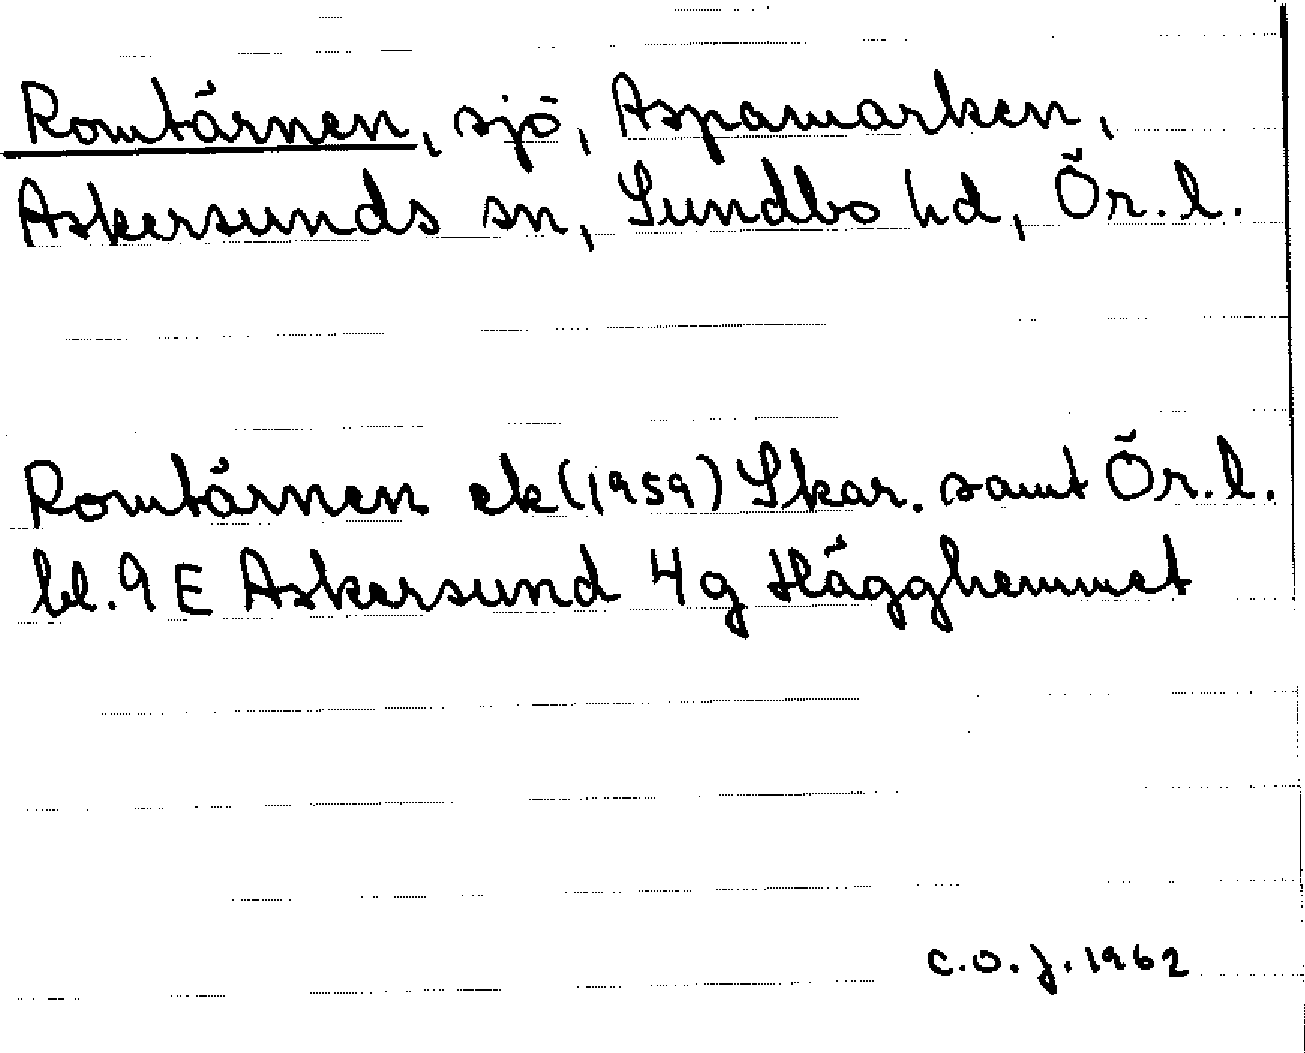 Romtärnen, sjö, Aspamarken,
Askersunds sn, Sundbo hd, Ör. l.
Romtärnen ek (1959) Skar. samt Ör. l.
bl. 9 E Askersund 4 g Hägghemmet
C.O.J. 1962